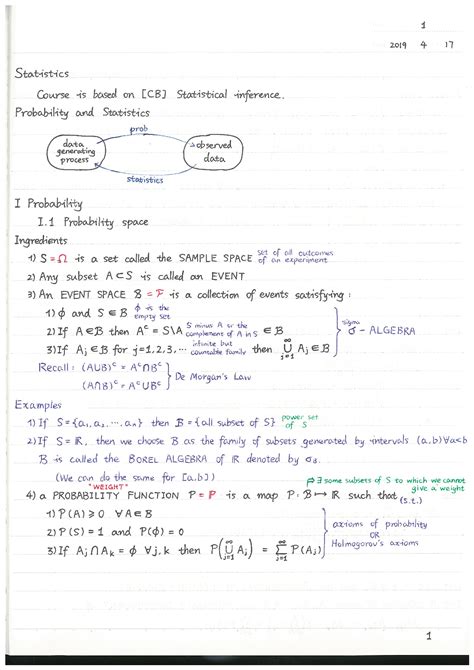 1
2019 4 17
Statistics
Course is based on [CB] Statistical inference.
Probability and Statistics
prob
data generating process
observed data
statistics
I Probability
I.1 Probability space
Ingredients
1) S = Ω is a set called the SAMPLE SPACE set of all outcomes of an experiment
2) Any subset A ⊂ S is called an EVENT
3) An EVENT SPACE B = F is a collection of events satisfying :
1) ϕ and S ∈ B ϕ is the empty set
2) If A ∈ B then Aᶜ = S\A S minus A or the complement of A in S ∈ B
3) If Aj ∈ B for j=1,2,3,⋯ infinite but countable family then ∞⋃j=1 Aj ∈ B
} sigma σ – ALGEBRA
Recall : (A∪B)ᶜ = Aᶜ∩Bᶜ
(A∩B)ᶜ = Aᶜ∪Bᶜ
} De Morgan's Law
Examples
1) If S = {a₁, a₂, ⋯, aₙ} then B = {all subset of S} power set of S
2) If S = ℝ, then we choose B as the family of subsets generated by intervals (a,b) ∀a<b
B is called the BOREL ALGEBRA of ℝ denoted by σB.
(We can do the same for [a,b])
∃ some subsets of S to which we cannot give a weight
"WEIGHT"
4) a PROBABILITY FUNCTION P = ℙ is a map P : B ↦ ℝ such that (s.t.)
1) P(A) ⩾ 0 ∀A ∈ B
2) P(S) = 1 and P(ϕ) = 0
3) If Aj ∩ Ak = ϕ ∀j,k then P(∞⋃j=1 Aj) = ∞∑j=1 P(Aj)
} axioms of probability
OR
Kolmogorov's axioms
1